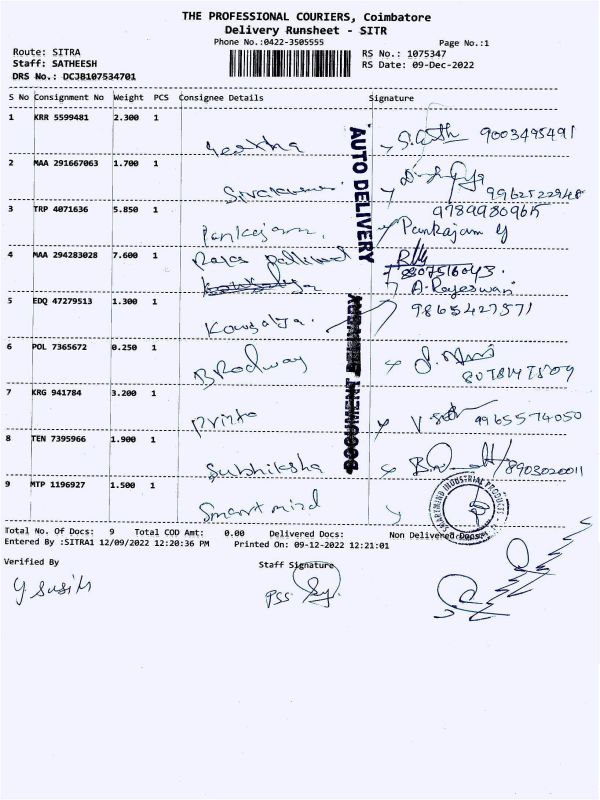 THE PROFESSIONAL COURIERS, Coimbatore
Delivery Runsheet - SITR
Phone No.:0422-3505555 Page No.:1
Route: SITRA RS No.: 1075347
Staff: SATHEESH RS Date: 09-Dec-2022
DRS No.: DCJB107534701
S No Consignment No Weight PCS Consignee Details Signature
1 KRR 5599481 2.300 1
Geetha 9003495491
2 MAA 291667063 1.700 1
Sivakumar 9962522948
3 TRP 4071636 5.850 1 9789980965
Pankajam Pankajam y
AUTO DELIVERY
4 MAA 294283028 7.600 1 Rajas
8807516043
A. Rajeswari
5 EDQ 47279513 1.300 1 9865427571
Kousalya
6 POL 7365672 0.250 1
Brodway
7 KRG 941784 3.200 1
9965574050
DOCUMENT
8 TEN 7395966 1.900 1
Subhiksha 8903020011
9 MTP 1196927 1.500 1
Smart mind
SMARTMIND INDUSTRIAL PRODUCTS
Total No. Of Docs: 9 Total COD Amt: 0.00 Delivered Docs: Non Delivered Docs:
Entered By :SITRA1 12/09/2022 12:20:36 PM Printed On: 09-12-2022 12:21:01
Verified By Staff Signature
y susih PSS